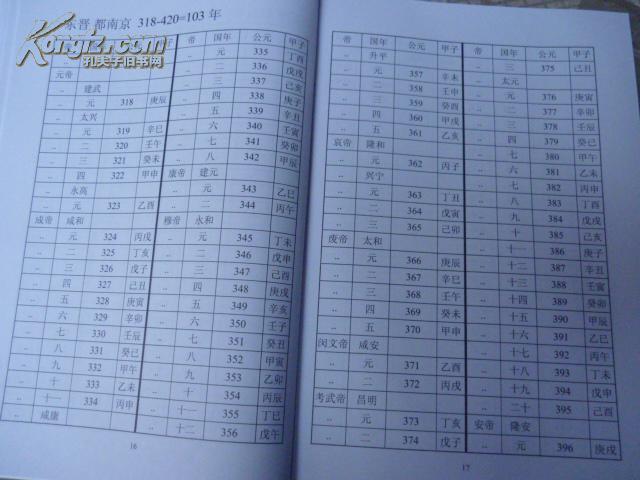 东晋 都南京 318-420=103年
Kongfz.com
孔夫子旧书网
元帝
.. 建武
.. 元 318 庚辰
.. 太兴
.. 元 319 辛巳
.. 二 320 壬午
.. 三 321 癸未
.. 四 322 甲申
.. 永高
.. 元 323 乙酉
成帝 咸和
.. 元 324 丙戌
.. 二 325 丁亥
.. 三 326 戊子
.. 四 327 己丑
.. 五 328 庚寅
.. 六 329 辛卯
.. 七 330 壬辰
.. 八 331 癸巳
.. 九 332 甲午
.. 十 333 乙未
.. 十一 334 丙申
.. 咸康
帝 国年 公元 甲子
.. 元 335 丁酉
.. 二 336 戊戌
.. 三 337 己亥
.. 四 338 庚子
.. 五 339 辛丑
.. 六 340 壬寅
.. 七 341 癸卯
.. 八 342 甲辰
康帝 建元
.. 元 343 乙巳
.. 二 344 丙午
穆帝 永和
.. 元 345 丁未
.. 二 346 戊申
.. 三 347 己酉
.. 四 348 庚戌
.. 五 349 辛亥
.. 六 350 壬子
.. 七 351 癸丑
.. 八 352 甲寅
.. 九 353 乙卯
.. 十 354 丙辰
.. 十一 355 丁巳
.. 十二 356 戊午
16
帝 国年 公元 甲子
.. 升平
.. 元 357 辛未
.. 二 358 壬申
.. 三 359 癸酉
.. 四 360 甲戌
.. 五 361 乙亥
哀帝 隆和
.. 元 362 丙子
.. 兴宁
.. 元 363 丁丑
.. 二 364 戊寅
.. 三 365 己卯
废帝 太和
.. 元 366 庚辰
.. 二 367 辛巳
.. 三 368 壬午
.. 四 369 癸未
.. 五 370 甲申
闵文帝 咸安
.. 元 371 乙酉
.. 二 372 丙戌
考武帝 昌明
.. 元 373 丁亥
.. 二 374 戊子
帝 国年 公元 甲子
.. 三 375 己丑
.. 太元
.. 元 376 庚寅
.. 二 377 辛卯
.. 三 378 壬辰
.. 四 379 癸巳
.. 七 380 甲午
.. 六 381 乙未
.. 七 382 丙申
.. 八 383 丁酉
.. 九 384 戊戌
.. 十 385 己亥
.. 十一 386 庚子
.. 十二 387 辛丑
.. 十三 388 壬寅
.. 十四 389 癸卯
.. 十五 390 甲辰
.. 十六 391 乙巳
.. 十七 392 丙午
.. 十八 393 丁未
.. 十九 394 戊申
.. 二十 395 己酉
安帝 隆安
.. 元 396 庚戌
17